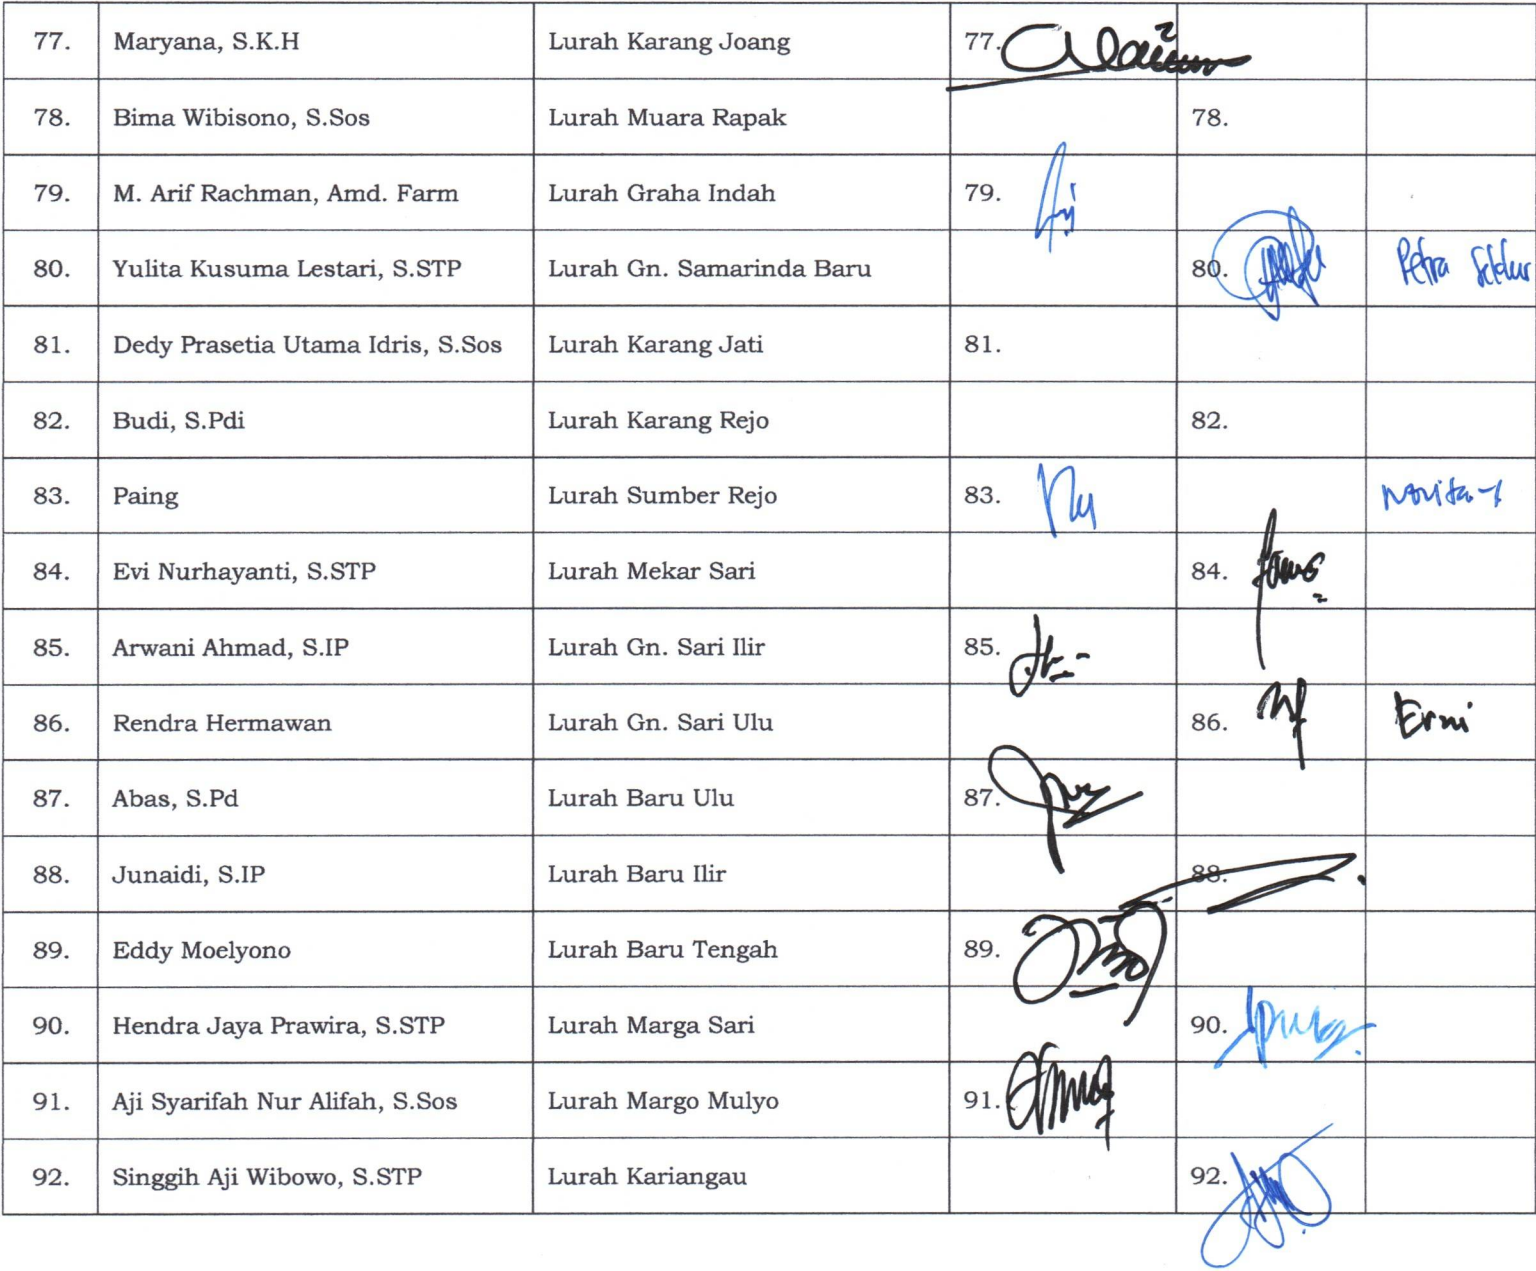 77. Maryana, S.K.H Lurah Karang Joang 77.
78. Bima Wibisono, S.Sos Lurah Muara Rapak 78.
79. M. Arif Rachman, Amd. Farm Lurah Graha Indah 79.
80. Yulita Kusuma Lestari, S.STP Lurah Gn. Samarinda Baru 80. Petra
81. Dedy Prasetia Utama Idris, S.Sos Lurah Karang Jati 81.
82. Budi, S.Pdi Lurah Karang Rejo 82.
83. Paing Lurah Sumber Rejo 83.
84. Evi Nurhayanti, S.STP Lurah Mekar Sari 84.
85. Arwani Ahmad, S.IP Lurah Gn. Sari Ilir 85.
86. Rendra Hermawan Lurah Gn. Sari Ulu 86. Erni
87. Abas, S.Pd Lurah Baru Ulu 87.
88. Junaidi, S.IP Lurah Baru Ilir 88.
89. Eddy Moelyono Lurah Baru Tengah 89.
90. Hendra Jaya Prawira, S.STP Lurah Marga Sari 90.
91. Aji Syarifah Nur Alifah, S.Sos Lurah Margo Mulyo 91.
92. Singgih Aji Wibowo, S.STP Lurah Kariangau 92.